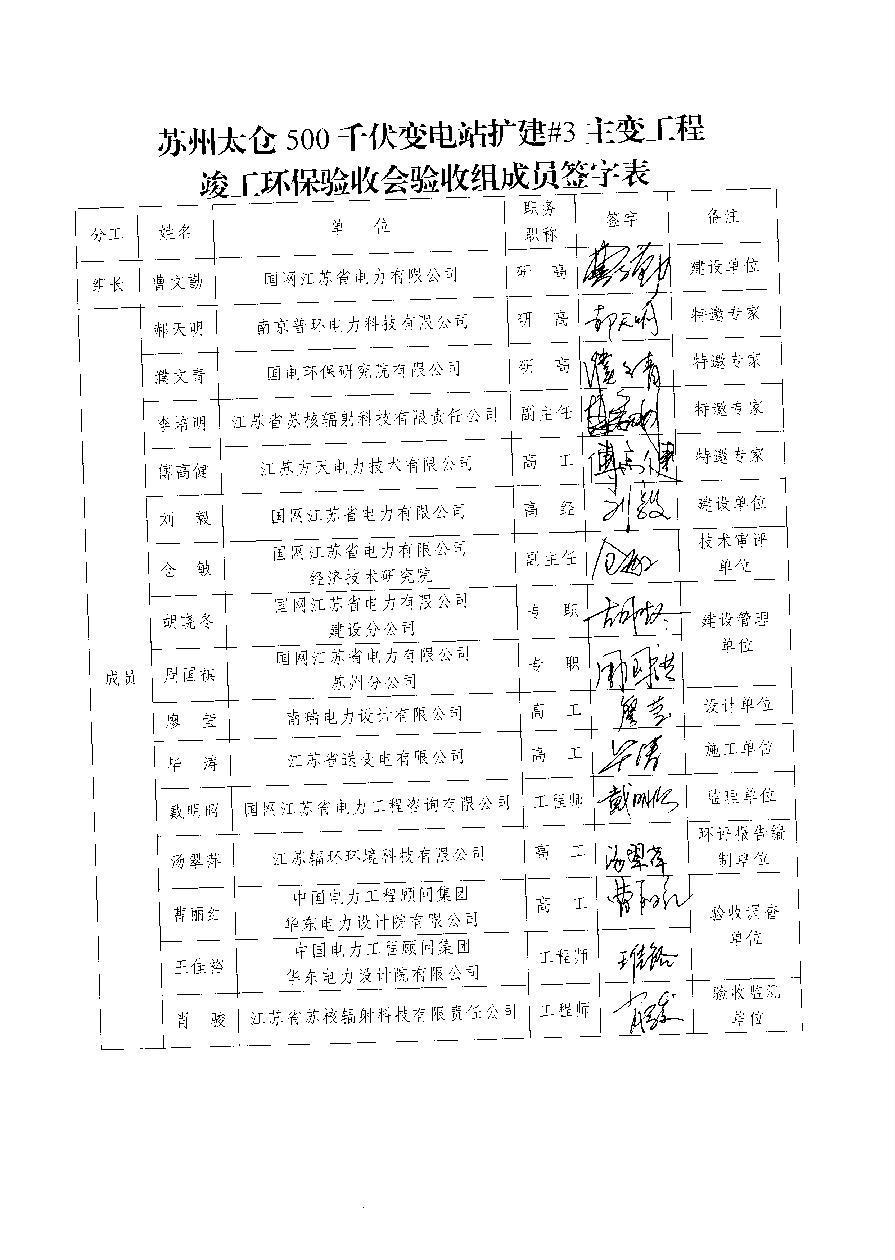 苏州太仓 500 千伏变电站扩建#3 主变工程
竣工环保验收会验收组成员签字表
分工 姓名 单 位 职务职称 签字 备注
组长 曹文勤 国网江苏省电力有限公司 研 高 曹文勤 建设单位
成员
郝天明 南京普环电力科技有限公司 研 高 郝天明 特邀专家
濮文青 国电环保研究院有限公司 研 高 濮文青 特邀专家
李培明 江苏省苏核辐射科技有限责任公司 副主任 特邀专家
傅高健 江苏方天电力技术有限公司 高 工 傅高健 特邀专家
刘 毅 国网江苏省电力有限公司 高 经 刘毅 建设单位
仓 敏 国网江苏省电力有限公司 副主任 仓敏 技术审评
经济技术研究院 单位
胡晓冬 国网江苏省电力有限公司 专 职 建设管理
建设分公司 单位
周国祺 国网江苏省电力有限公司 专 职
苏州分公司
廖 莹 南瑞电力设计有限公司 高 工 设计单位
毕 涛 江苏省送变电有限公司 高 工 毕涛 施工单位
戴明昭 国网江苏省电力工程咨询有限公司 工程师 监理单位
汤翠萍 江苏辐环环境科技有限公司 高 工 汤翠萍 环评报告编
制单位
曹丽红 中国电力工程顾问集团 高 工 曹丽红 验收调查
华东电力设计院有限公司 单位
王佳裕 中国电力工程顾问集团 工程师
华东电力设计院有限公司
肖 骏 江苏省苏核辐射科技有限责任公司 工程师 肖骏 验收监测
单位